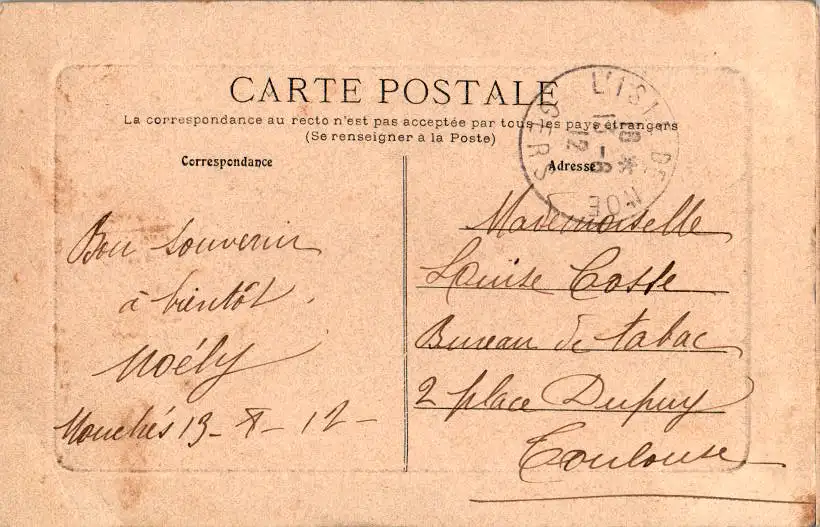 CARTE POSTALE
La correspondance au recto n'est pas acceptée par tous les pays étrangers
(Se renseigner à la Poste)
Correspondance
Bon souvenir
à bientôt.
Noély
Mouchés 13-8-12-
Adresse
L'ISLE DE NOE
GERS
12
Mademoiselle
Louise Cosse
Bureau de tabac
2 place Dupuy
Toulouse